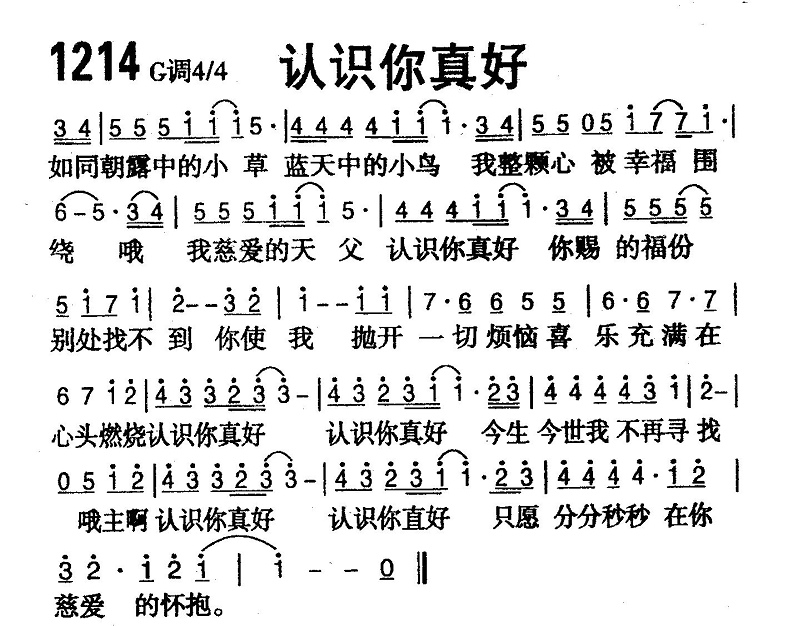 1214 G调4/4 认识你真好
3 4 | 5 5 5 i i i 5 · | 4 4 4 4 i i i · 3 4 | 5 5 0 5 i 7 7 i · |
如同朝露中的小 草 蓝天中的小鸟 我整颗心 被 幸福 围
6 - 5 · 3 4 | 5 5 5 i i i 5 · | 4 4 4 i i i · 3 4 | 5 5 5 5
绕 哦 我慈爱的天 父 认识你真好 你赐 的福份
5 i 7 i | 2 - - 3 2 | i - - i i | 7 · 6 6 5 5 | 6 · 6 7 · 7 |
别处找不 到 你使 我 抛开 一切烦恼喜 乐充满在
6 7 i 2 | 4 3 3 2 3 3 - | 4 3 2 3 i i · 2 3 | 4 4 4 4 3 i | 2 -
心头燃烧认识你真好 认识你真好 今生 今世我 不再寻 找
0 5 i 2 | 4 3 3 2 3 3 - | 4 3 2 3 i i · 2 3 | 4 4 4 4 · i 2 |
哦主啊 认识你真好 认识你直好 只愿 分分秒秒 在你
3 2 · i 2 i | i - - 0 ‖
慈爱 的怀抱。